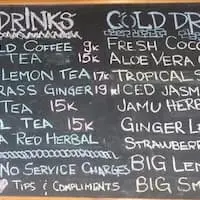 DRINKS
LD COFFEE 9K
TEA 15K
LEMON TEA 17K
RASS GINGER 19K
TEA 15K
L TEA 15K
A RED HERBAL
NO SERVICE CHARGES
TIPS & COMPLIMENTS
COLD DR
FRESH COCO
ALOE VERA
TROPICAL S
ICED JASM
JAMU HERB
GINGER L
STRAWBERR
BIG LEM
BIG SM